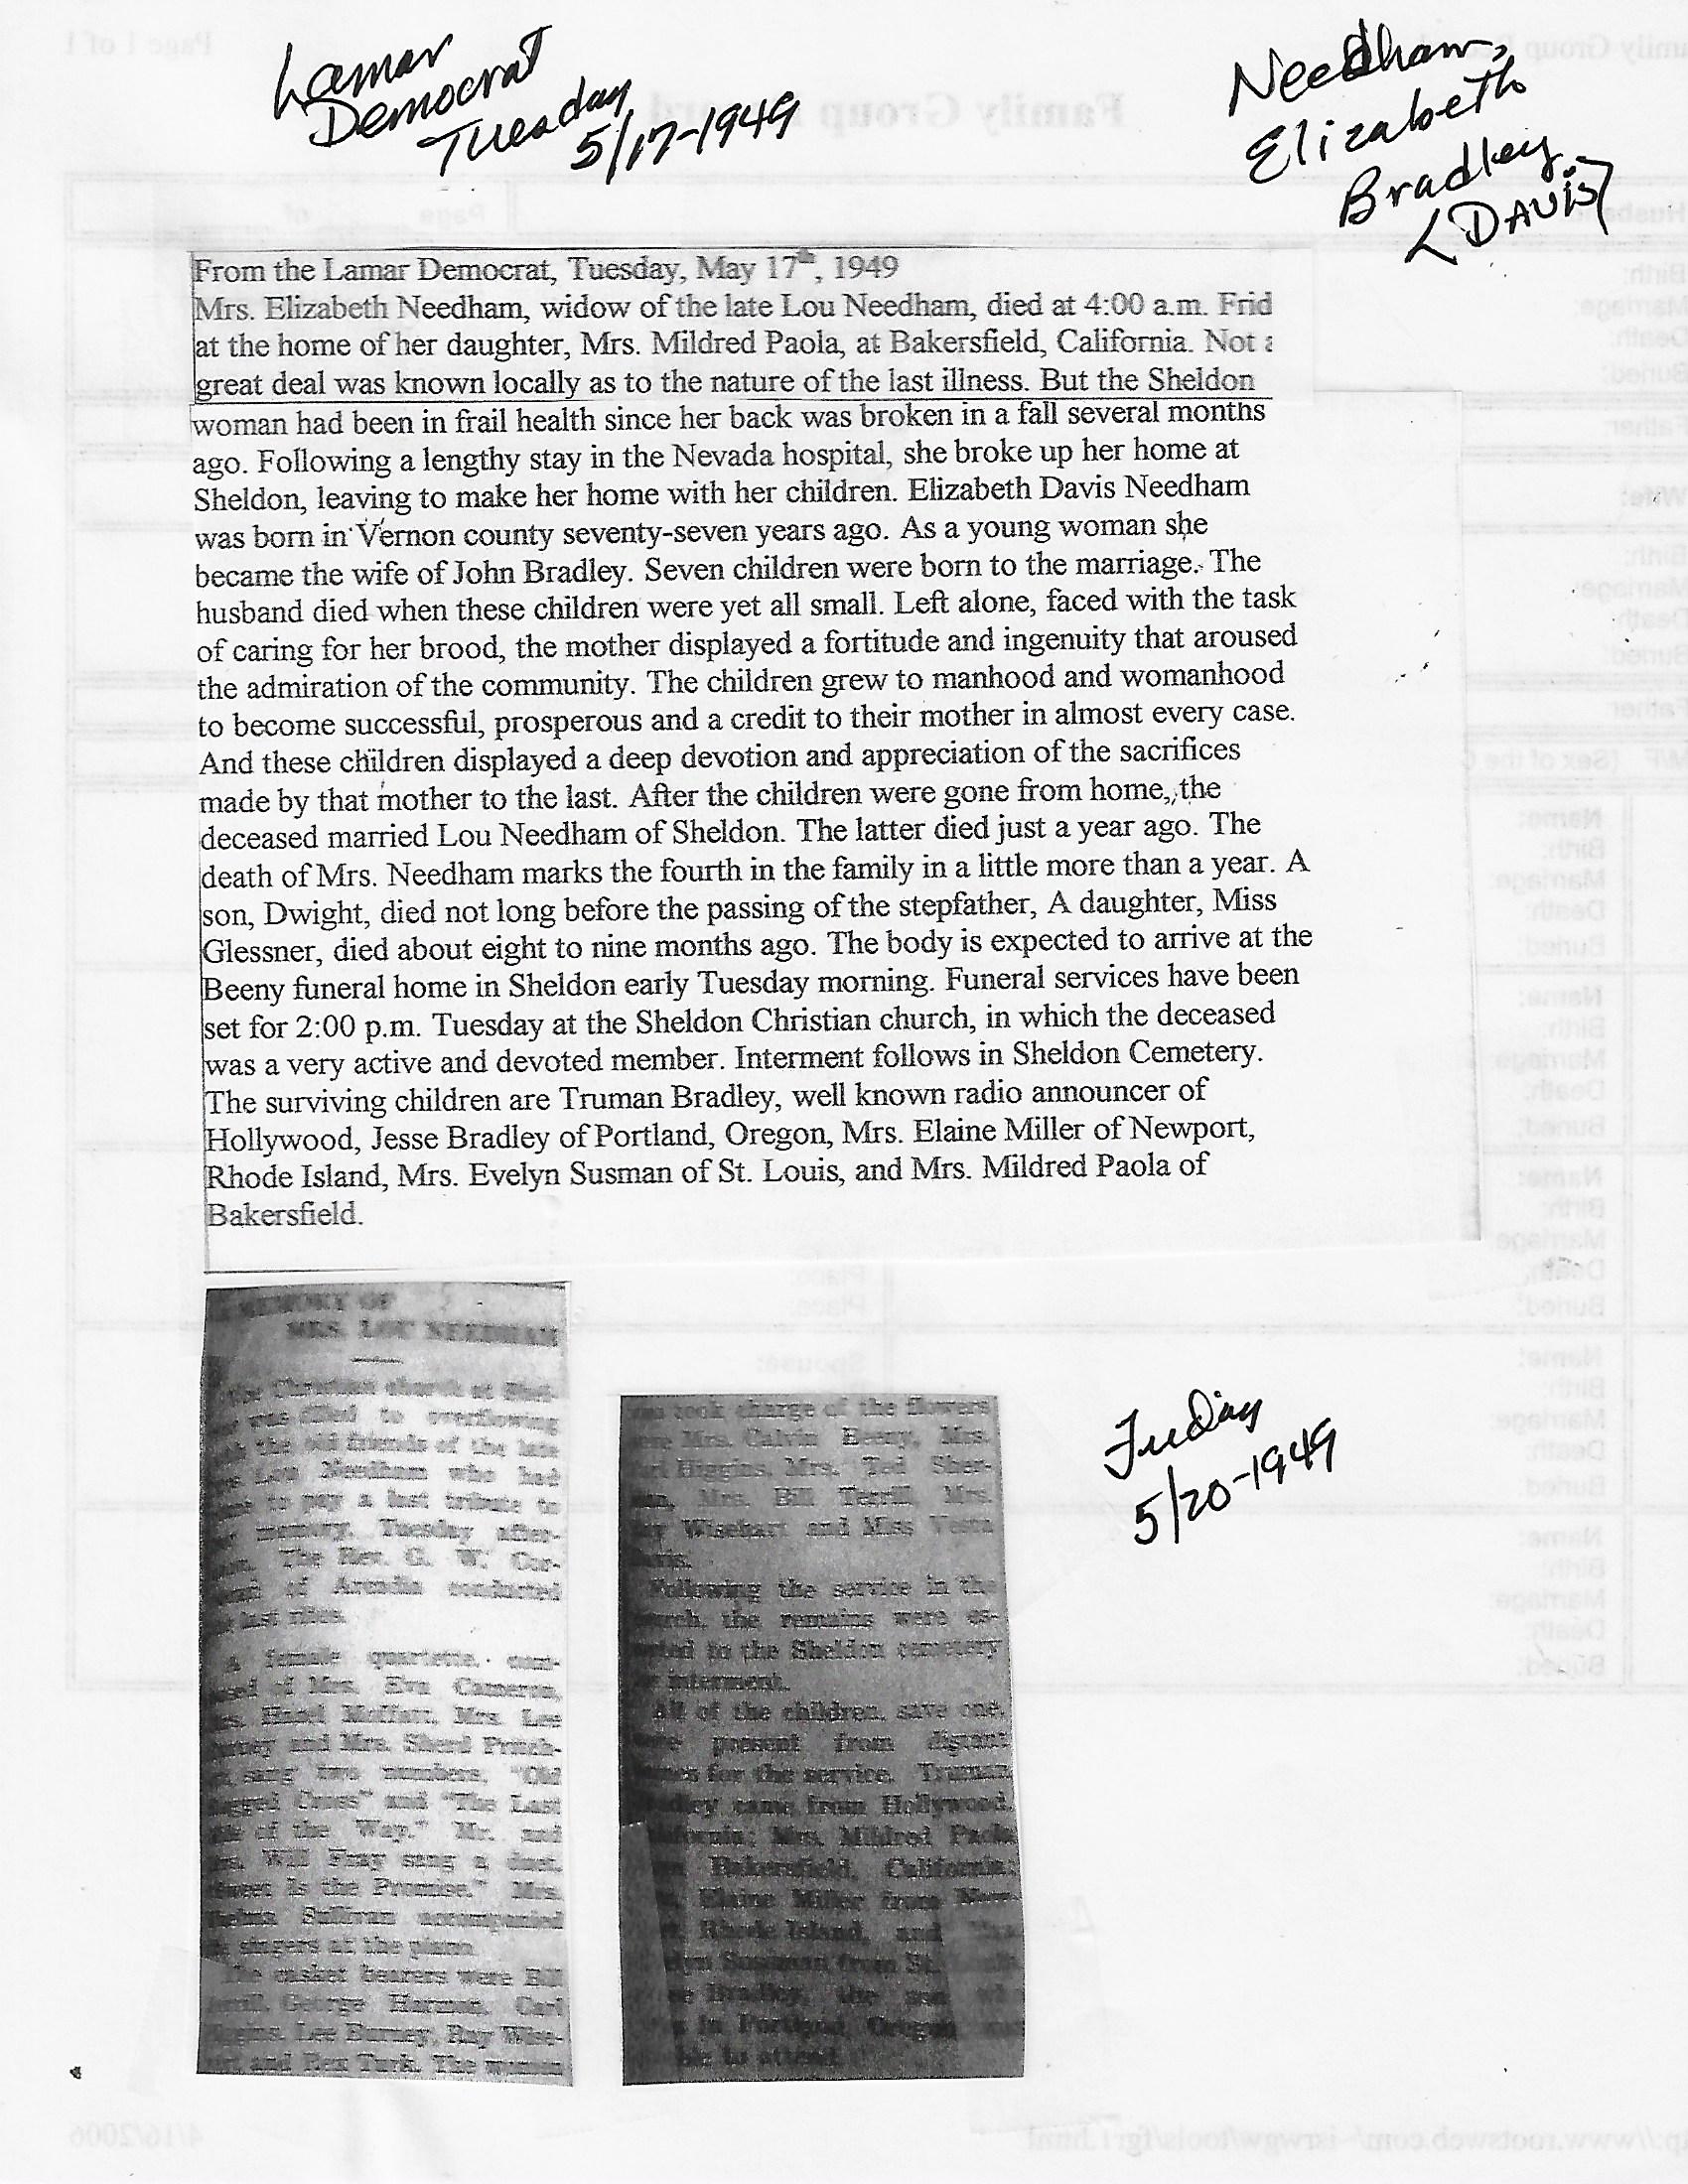 Lamar
Democrat
Tuesday
5/17-1949
Needham,
Elizabeth
Bradley
(DAVIS)
From the Lamar Democrat, Tuesday, May 17th, 1949
Mrs. Elizabeth Needham, widow of the late Lou Needham, died at 4:00 a.m. Frid
at the home of her daughter, Mrs. Mildred Paola, at Bakersfield, California. Not a
great deal was known locally as to the nature of the last illness. But the Sheldon
woman had been in frail health since her back was broken in a fall several months
ago. Following a lengthy stay in the Nevada hospital, she broke up her home at
Sheldon, leaving to make her home with her children. Elizabeth Davis Needham
was born in Vernon county seventy-seven years ago. As a young woman she
became the wife of John Bradley. Seven children were born to the marriage. The
husband died when these children were yet all small. Left alone, faced with the task
of caring for her brood, the mother displayed a fortitude and ingenuity that aroused
the admiration of the community. The children grew to manhood and womanhood
to become successful, prosperous and a credit to their mother in almost every case.
And these children displayed a deep devotion and appreciation of the sacrifices
made by that mother to the last. After the children were gone from home, the
deceased married Lou Needham of Sheldon. The latter died just a year ago. The
death of Mrs. Needham marks the fourth in the family in a little more than a year. A
son, Dwight, died not long before the passing of the stepfather, A daughter, Miss
Glessner, died about eight to nine months ago. The body is expected to arrive at the
Beeny funeral home in Sheldon early Tuesday morning. Funeral services have been
set for 2:00 p.m. Tuesday at the Sheldon Christian church, in which the deceased
was a very active and devoted member. Interment follows in Sheldon Cemetery.
The surviving children are Truman Bradley, well known radio announcer of
Hollywood, Jesse Bradley of Portland, Oregon, Mrs. Elaine Miller of Newport,
Rhode Island, Mrs. Evelyn Susman of St. Louis, and Mrs. Mildred Paola of
Bakersfield.
MEMORY OF
MRS. LOU NEEDHAM
Christian church at
was filled to overflowing
the old friends of the late
Lou Needham who had
to pay a last tribute to
memory, Tuesday after-
The Rev. G. W. Cor-
of Arcadia conducted
last rites.
A female quartette, com-
of Mrs. Eva Cameron,
Hazel Moffatt, Mrs. Lee
and Mrs. Sherd
sang two numbers, "Old
Cross" and "The Last
of the Way." Mr. and
Will Fray sang a duet,
is the Promise." Mrs.
Sullivan accompanied
singers at the piano.
The casket bearers were Bill
George Harmon, Carl
Lee Burney, Ray Wise-
and Rex Turk. The women
took charge of the flowers
Mrs. Calvin Beeny, Mrs.
Higgins, Mrs. Ted Sher-
Mrs. Bill Terrill, Mrs.
Wisehart and Miss Vesta
Following the service in the
the remains were es-
to the Sheldon cemetery
interment.
All of the children, save one,
present from distant
for the service. Truman
came from Hollywood,
Mrs. Mildred Paola
Bakersfield, California;
Elaine Miller from New-
Rhode Island, and
Susman from St.
Bradley, the son
in Portland, Oregon
to attend.
Friday
5/20-1949